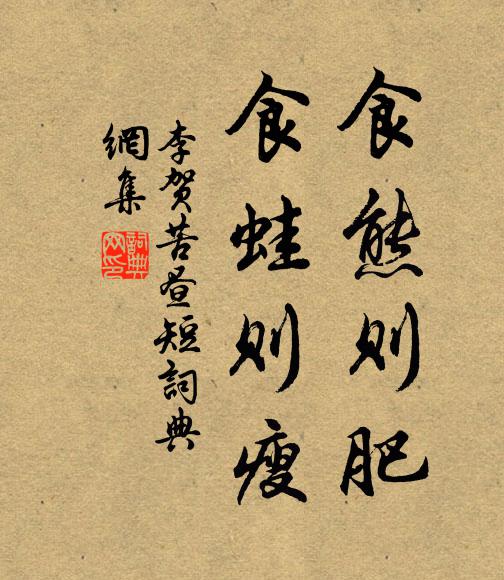 食熊则肥
食蛙则瘦
李贺苦昼短词典
網集
詞典
网印